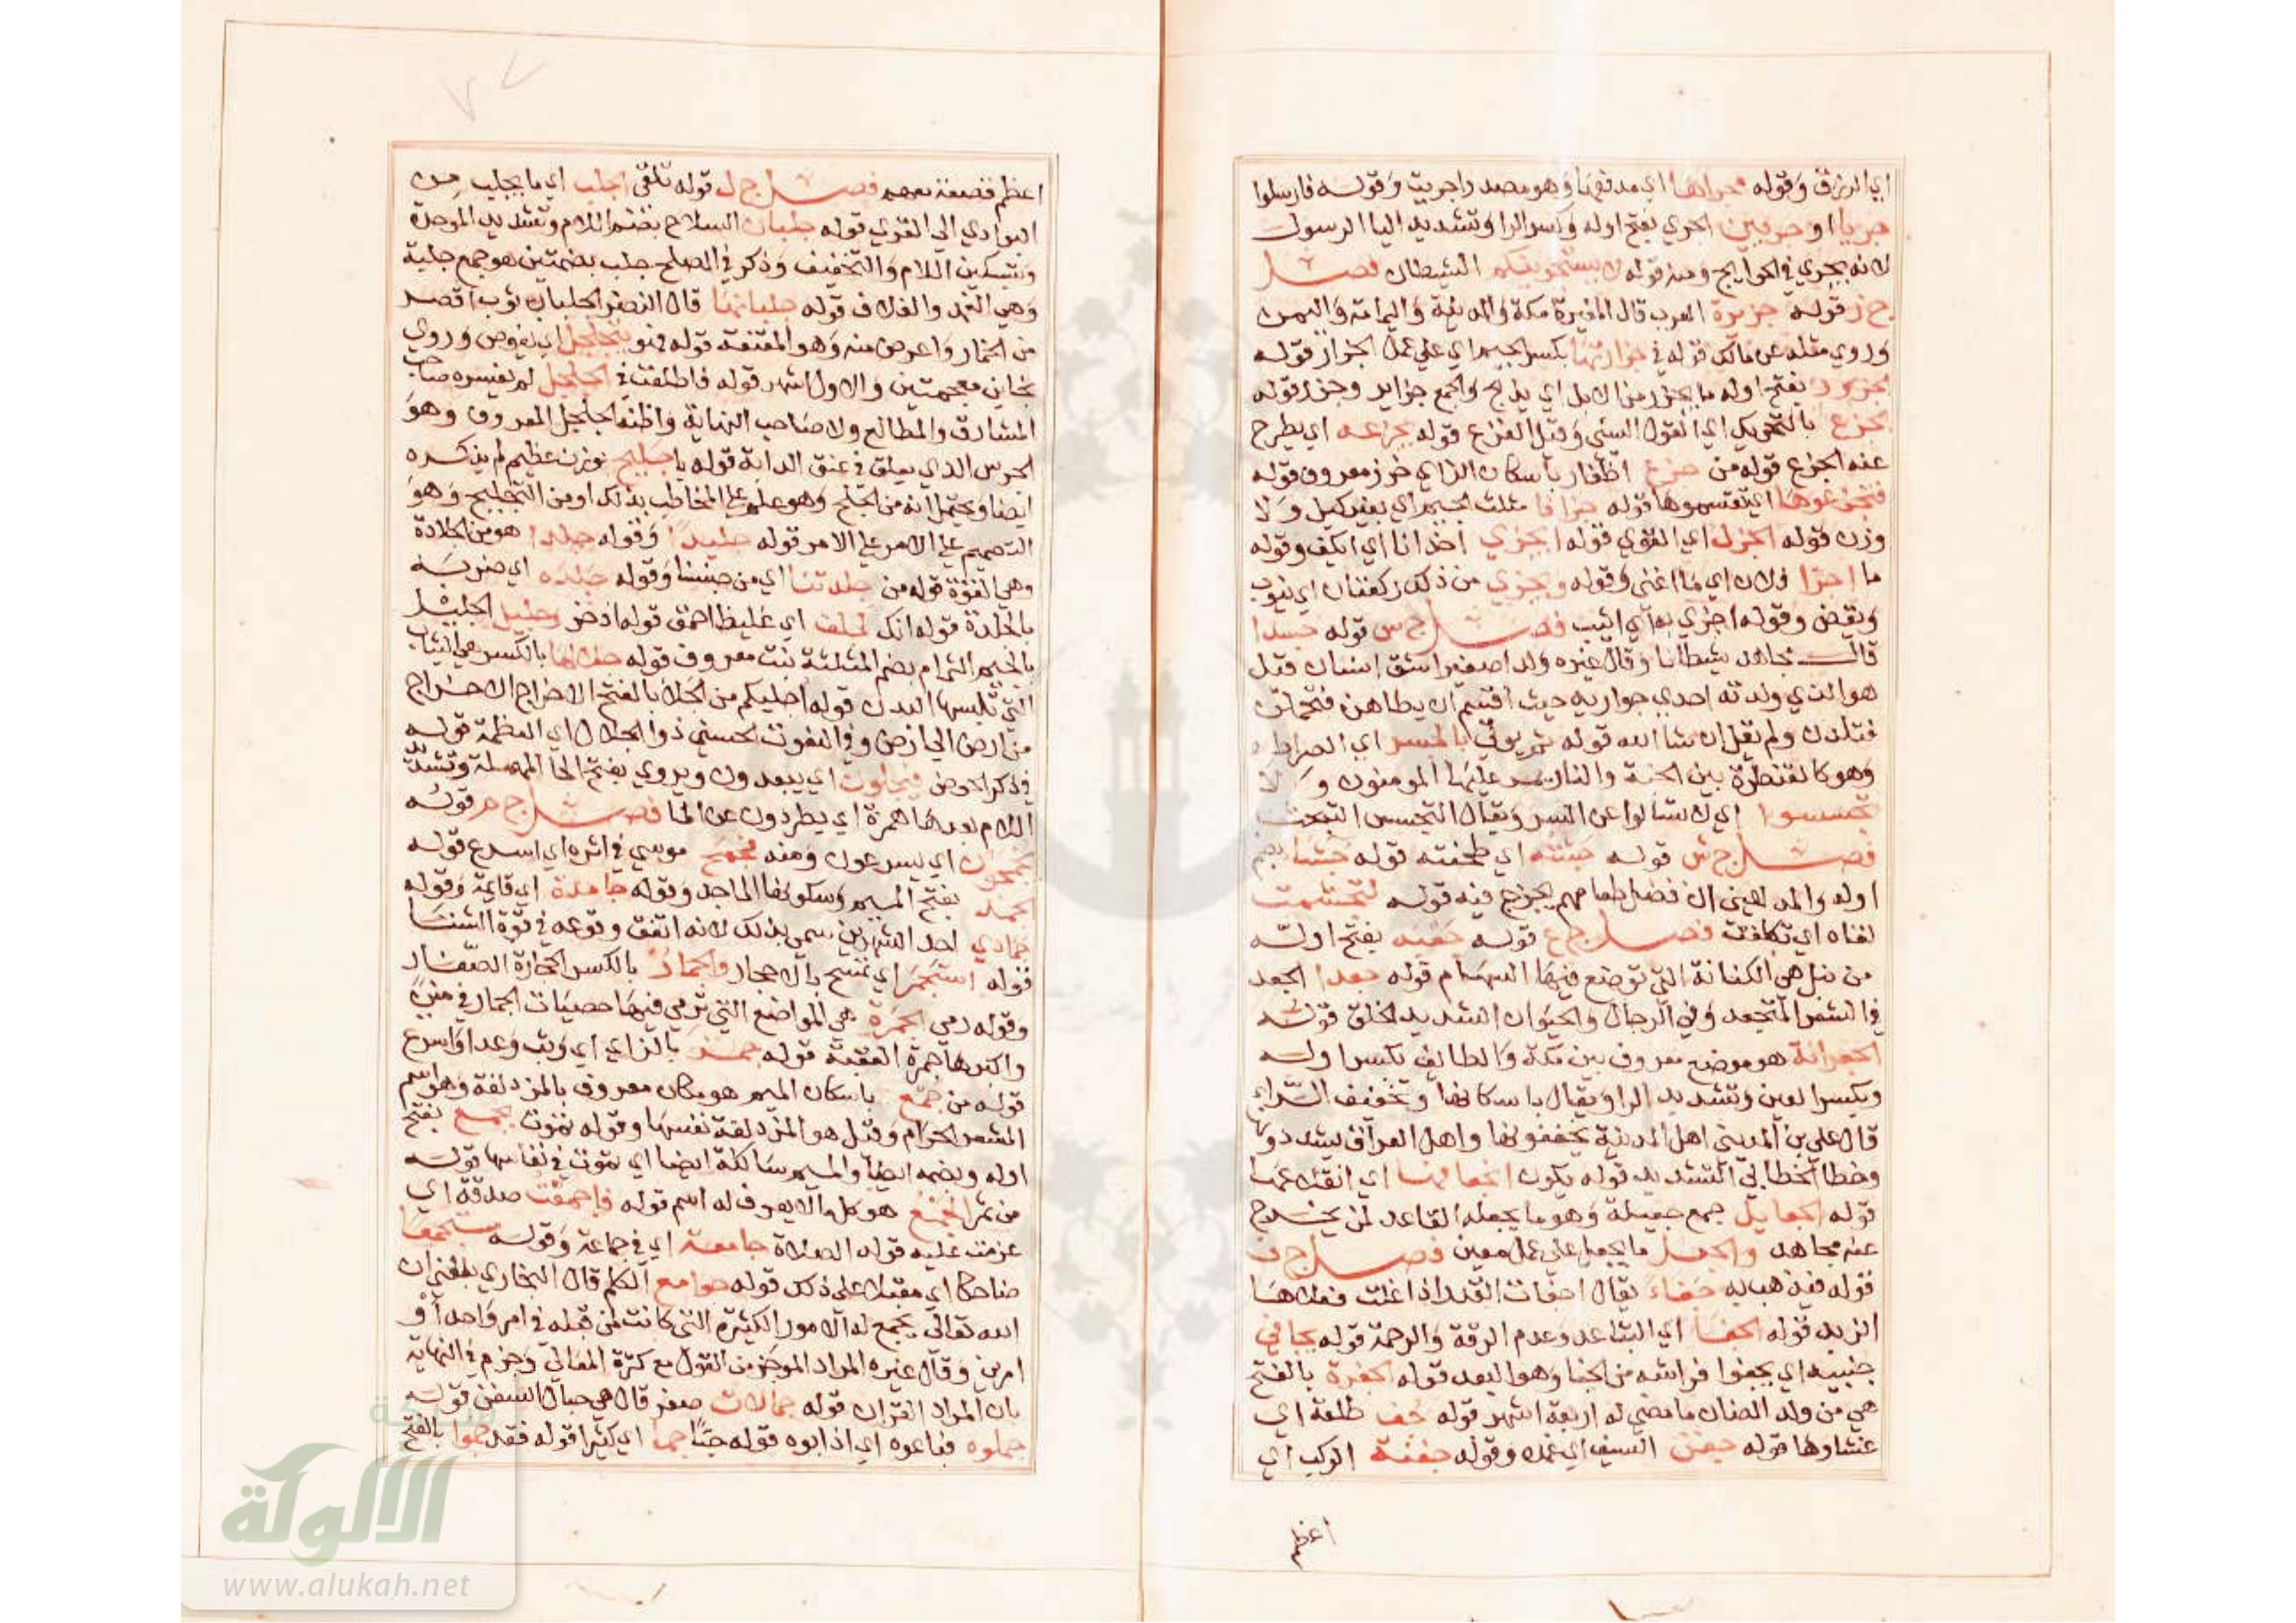 اي الرزق وقوله مجراها اي مدفعها وهو مصدر اجريت وقوله فارسلوا
جريا او جريين الجري بفتح اوله وكسر الرا وتشديد اليا الرسول
لانه يجري في الحوايج ومنه قوله لا يستجرينكم الشيطان فصل
ج ز قوله جزيرة العرب قال المغيرة مكة والمدينة واليمامة واليمن
وروي مثله عن مالك قوله في جزارتها بكسر الجيم اي علي عمل الجزار قوله
الجزور بفتح اوله ما يجزر من الابل اي يذبح والجمع جزاير وجزر قوله
الجزع بالتحريك اي القول السيي وقيل الفزع قوله يجزعه اي يطرح
عنه الجزع قوله من جزع اظفار باسكان الزاي خرز معروف قوله
فتجزعوها اي تقسموها قوله جزافا مثلث الجيم اي بغير كيل ولا
وزن قوله الجزل اي القوي قوله ايجزي احدانا اي ايكفي وقوله
ما اجزا فلان اي ما اغني وقوله ويجزي من ذلك ركعتان اي ينوب
ويقضي وقوله اجزي به اي اثيب فصل ج س قوله جسدا
قال مجاهد شيطانا وقال غيره ولد اصغير شق انسان قيل
هو الذي ولدته احدي جواريه حيث اقسم ان يطاهن فتحملن
فتلدن ولم يقل ان شا الله قوله ثم يوتي بالجسر اي الصراط
وهو كالقنطرة بين الجنة والنار يمر عليها المومنون ولا
تجسسوا اي لا تسالوا عن السر ويقال التجسس التبحث
فصل ج ش قوله جشته اي طحنته قوله جشا بضم
اوله والمد يعني ان فضل طعامهم يخرج فيه قوله لتجشمت
لقاه اي تكلفت فصل ج ع قوله جعبه بفتح اوله
من نبل هي الكنانة التي توضع فيها السهام قوله جعدا الجعد
في الشعر المتجعد وفي الرجال والحيوان الشديد الخلق قوله
الجعرانة هو موضع معروف بين مكة والطايف بكسر اوله
وبكسر العين وتشديد الرا ويقال باسكانها وتخفيف الراء
قال علي بن المديني اهل المدينة يخففونها واهل العراق يشددونها
وخطا الخطابي التشديد قوله يكون انجعافها اي انقلاعها
قوله الجعايل جمع جعيلة وهو ما يجعله القاعد لمن يخرج
عنه مجاهد والجعل ما يجعل علي عمل معين فصل ج ف
قوله فيذهب به جفاء يقال اجفات القدر اذا غلت فعلاها
الزبد قوله الجفا اي التباعد وعدم الرقة والرحمة قوله يجافي
جنبيه اي يجفوا فراشه من الجفا وهو البعد قوله الجفرة بالفتح
هي من ولد الضان ما مضي له اربعة اشهر قوله جف طلعة اي
غشاوها قوله جفن السيف اي غمده وقوله جفنة الركب اي
اعظم
اعظم قصعة معهم فصل ج ل قوله تلقي الجلب اي ما يجلب من
البوادي الي القري قوله جلبان السلاح بضم اللام وتشديد الموحدة
وبتسكين اللام والتخفيف وذكر في الصلح جلب بضمتين هو جمع جلبة
وهي الغمد والغلاف قوله جلبابها قال النضر الجلباب ثوب اقصر
من الخمار واعرض منه وهو المقنعة قوله فهو يتجلجل اي يغوص وروي
بخاين معجمتين والاول اشهر قوله فاطلعت في الجلجل لم يفسره صاحب
المشارق والمطالع ولا صاحب النهاية واظنه الجلجل المعروف وهو
الجرس الذي يعلق في عنق الدابة قوله يا جليح بوزن عظيم لم يذكره
ايضا ويحتمل انه من الجلح وهو علم علي المخاطب بذلك او من التجليح وهو
التصميم علي الامر علي الامر قوله جليدا وقوله جلدا هو من الجلادة
وهي القوة قوله من جلدتنا اي من جنسنا وقوله جلده اي ضربه
بالجلدة قوله انك لجلف اي غليظ احمق قوله اذخر وجليل الجليل
بالجيم الثمام بضم المثلثة نبت معروف قوله جلالها بالكسر هي الثياب
التي تلبسها البدن قوله اجليكم من الجلا بالفتح الاخراج الاخراج
من ارض الي ارض وفي النعوت الحسني ذو الجلال اي العظمة قوله
في ذكر الحوض فيجلون اي يبعدون ويروي بفتح الحا المهملة وتشديد
اللام بعدها همزة اي يطردون عن الما فصل ج م قوله
يجمحون اي يسرعون ومنه فجمح موسي في اثره اي اسرع قوله
الجمد بفتح الميم وسكونها الماجد وقوله جامدة اي قايمة وقوله
جمادي احد الشهرين سمي بذلك لانه اتفق وقوعه في قوة الشتا
قوله استجمر اي تمسح بالاحجار والجمار بالكسر الحجارة الصغار
وقوله رمي الجمرة هي المواضع التي ترمي فيها حصيات الجمار في مني
واكبرها جمرة العقبة قوله جمز بالزاي اي وثب وعدا واسرع
قوله من جمع باسكان الميم هو مكان معروف بالمزدلفة وهو اسم
المشعر الحرام وقيل هو المزدلفة نفسها وقوله تموت بجمع بفتح
اوله وبضمه ايضا والميم ساكنة ايضا اي تموت في نفاسها قوله
من تمر الجمع هو كل ما لا يعرف له اسم قوله فاجمعت صدقه اي
عزمت عليه قوله الصلاة جامعة اي في جماعة وقوله مستجمعا
ضاحكا اي مقبلا علي ذلك قوله جوامع الكلم قال البخاري بلغني ان
الله تعالي يجمع له الامور الكثيرة التي كانت لمن قبله في امر واحد او
امرين وقال غيره المراد الموجز من القول مع كثرة المعاني وجزم في النهاية
بان المراد القران قوله جمالات صفر قال هي حبال السفن قوله
جملوه فباعوه اي اذابوه قوله حبا جما اي كثيرا قوله فقد جموا بالفتح
شبكة
الألوكة
www.alukah.net